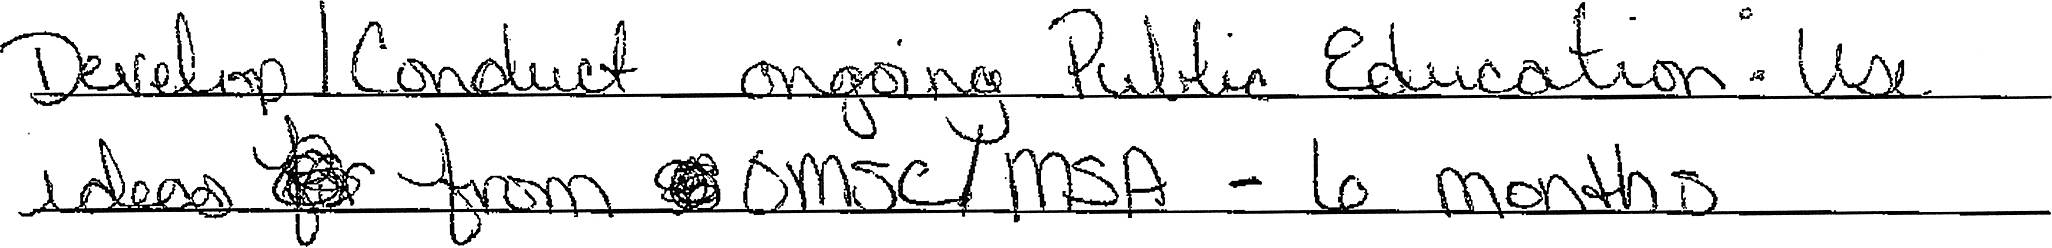 Develop/Conduct ongoing Public Education: Use
ideas from OMSC/MSA - 6 months